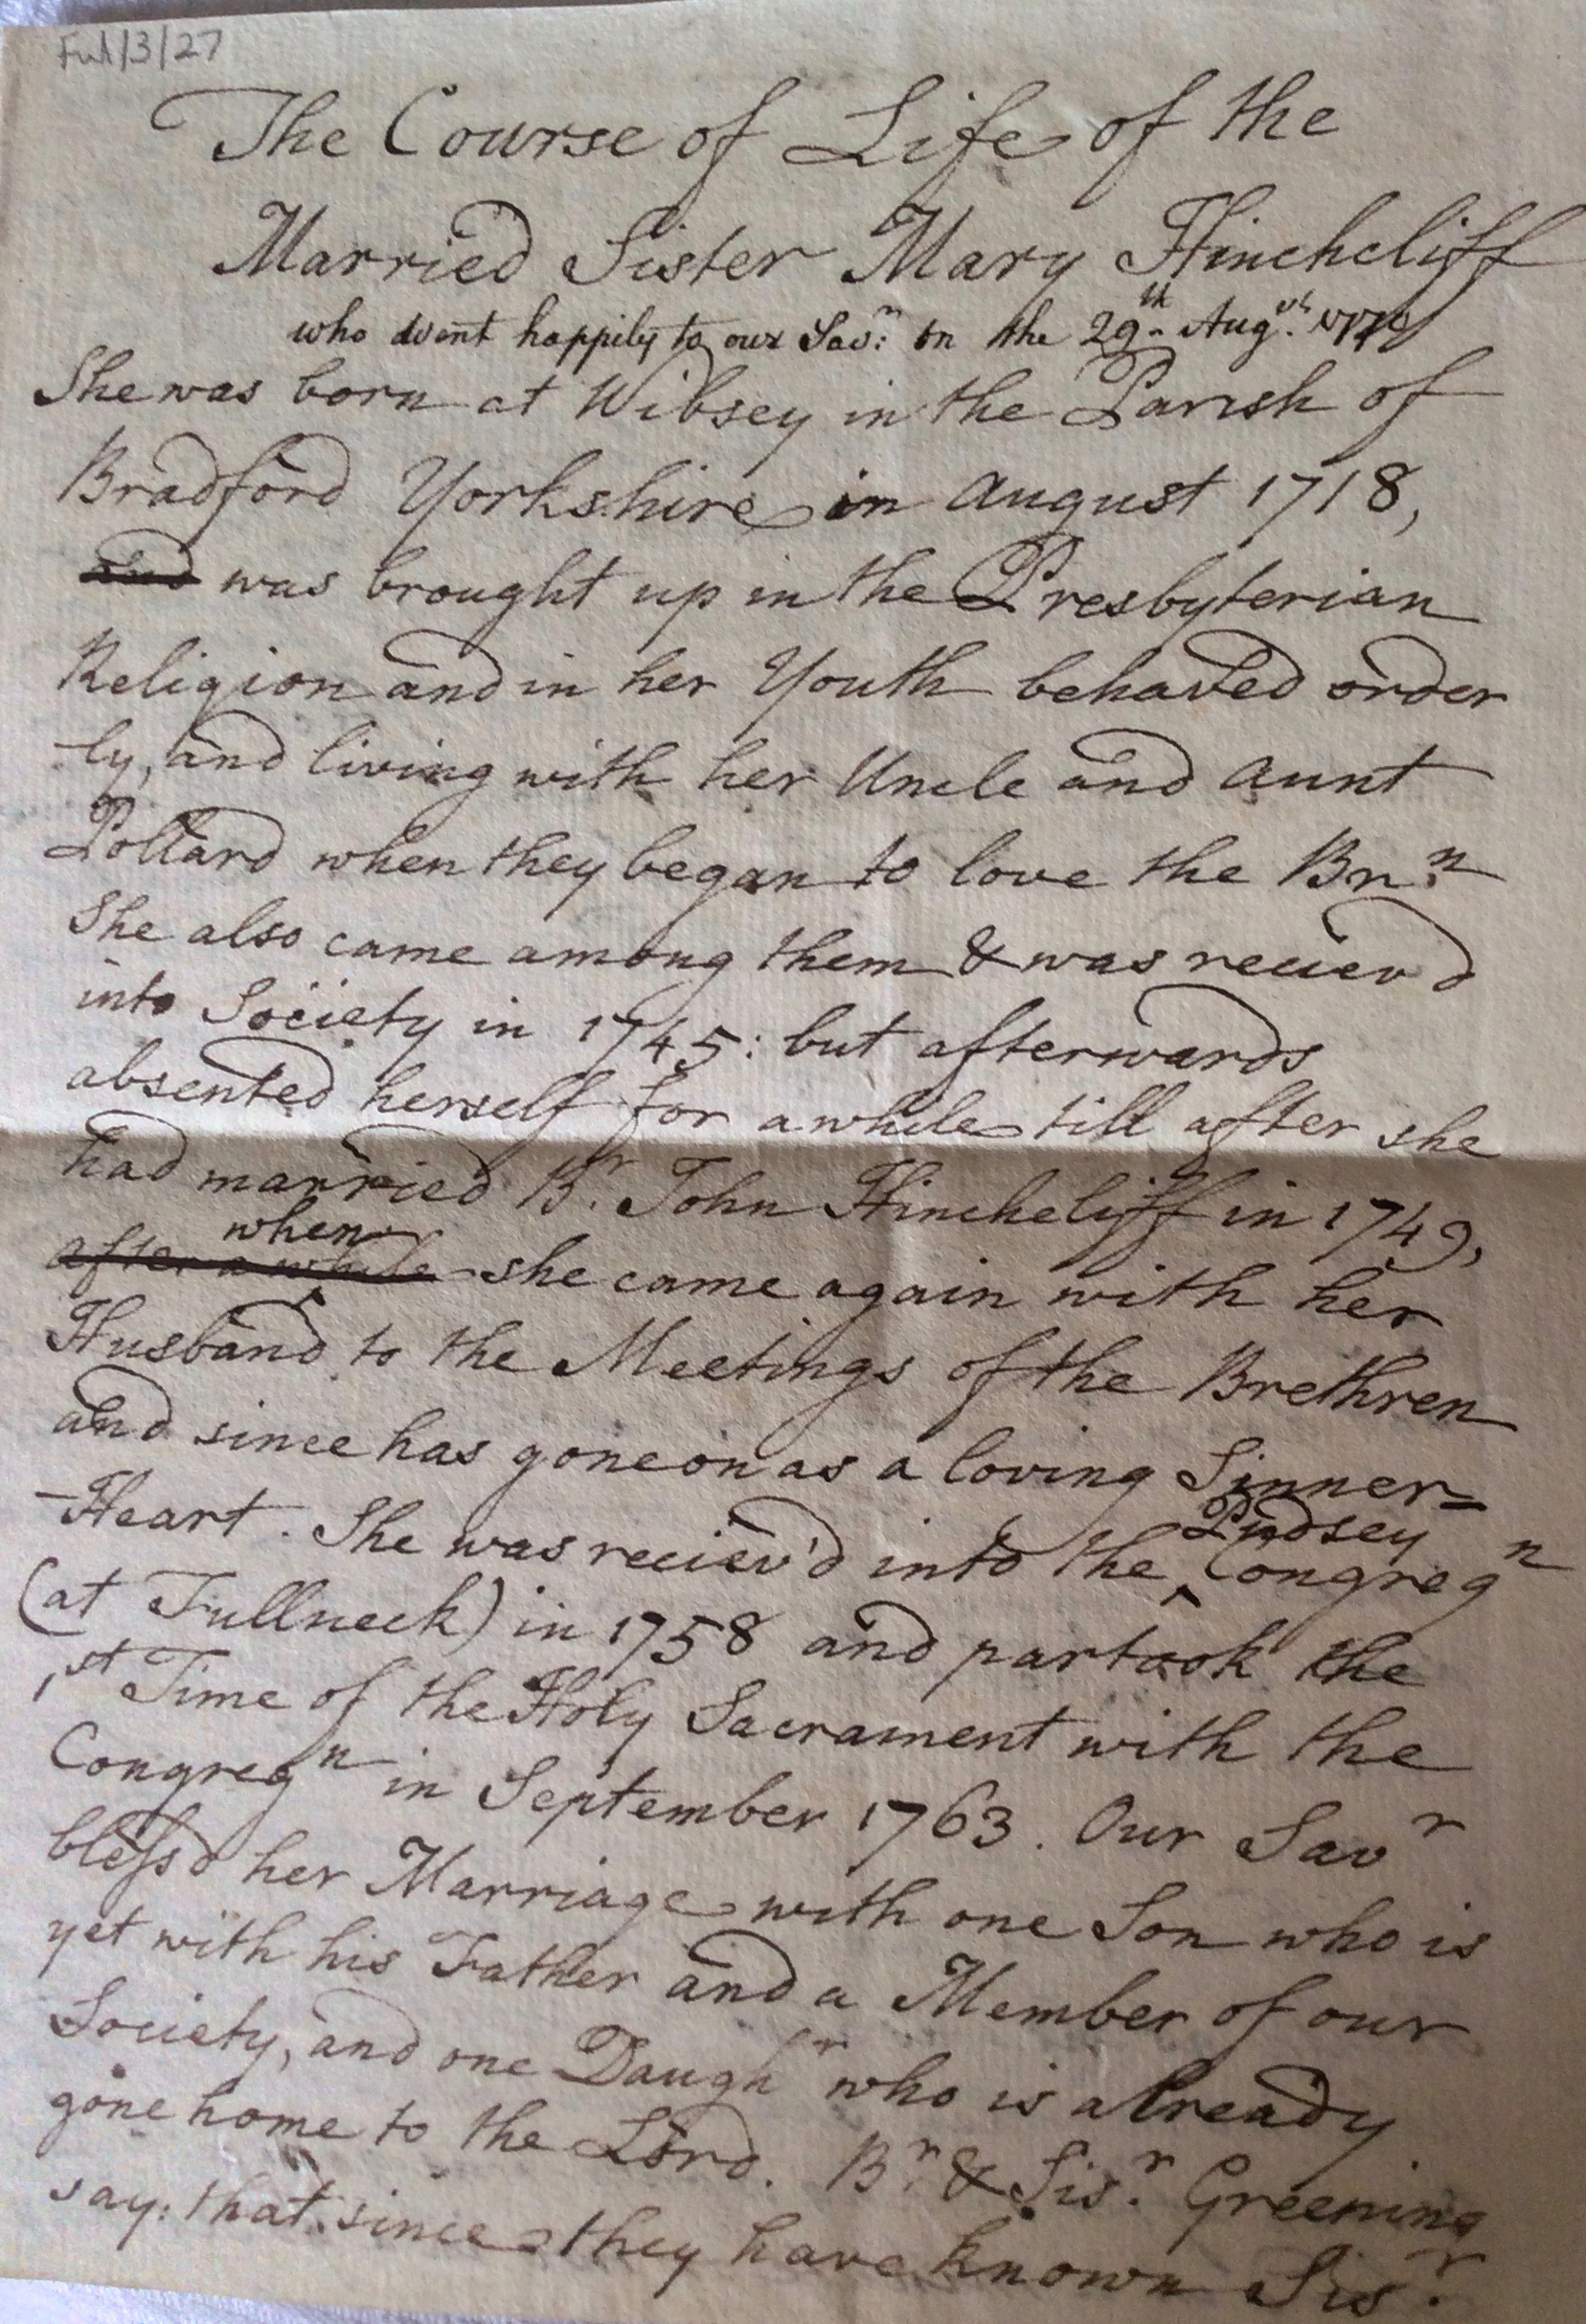 Ful/3/27
The Course of Life of the
Married Sister Mary Hinchcliff
who went happily to our Savr: on the 29th Augst.
She was born at Wibsey in the Parish of
Bradford Yorkshire in August 1718,
and was brought up in the Presbyterian
Religion and in her Youth behaved order
-ly, and living with her Uncle and Aunt
Pollard when they began to love the Brn.
She also came among them & was reciev'd
into Society in 1745: but afterwards
absented herself for a while till after she
had married Br. John Hinchcliff in 1749,
when
after a while she came again with her
Husband to the Meetings of the Brethren
and since has gone on as a loving Sinner=
-Heart. She was reciev'd into the ‸ Pudsey Congregn
(at Fullneck) in 1758 and partook the
1st Time of the Holy Sacrament with the
Congregn in September 1763. Our Savr
blessd her Marriage with one Son who is
yet with his Father and a Member of our
Society, and one Daughr who is already
gone home to the Lord. Br. & Sisr. Greening
say: that since they have known Sisr.